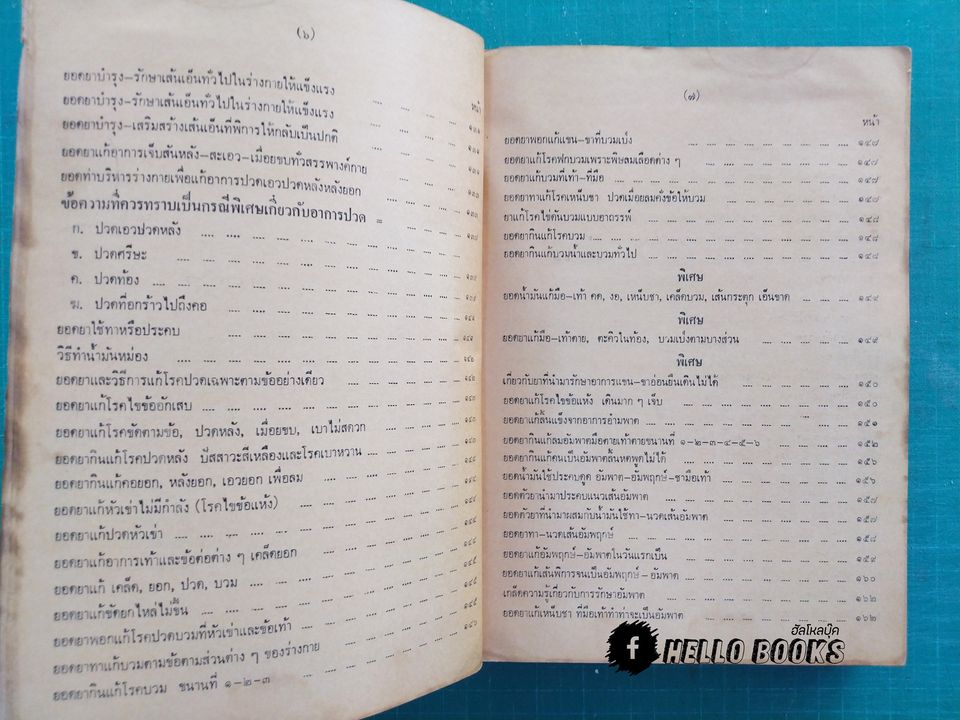 (๖)
หน้า
ยอดยาบำรุง-รักษาเส้นเอ็นทั่วไปในร่างกายให้แข็งแรง
ยอดยาบำรุง-รักษาเส้นเอ็นทั่วไปในร่างกายให้แข็งแรง
ยอดยาบำรุง-เสริมสร้างเส้นเอ็นที่พิการให้กลับเป็นปกติ
ยอดยาแก้อาการเจ็บสันหลัง-สะเอว-เมื่อยขบทั่วสรรพางค์กาย
ยอดท่าบริหารร่างกายเพื่อแก้อาการปวดเอวปวดหลังหลังยอก
ข้อความที่ควรทราบเป็นกรณีพิเศษเกี่ยวกับอาการปวด =
ก. ปวดเอวปวดหลัง
ข. ปวดศรีษะ
ค. ปวดท้อง
ฆ. ปวดที่อกร้าวไปถึงคอ
ยอดยาใช้ทาหรือประคบ
วิธีทำน้ำมันหม่อง
ยอดยาและวิธีการแก้โรคปวดเฉพาะตามข้ออย่างเดียว
ยอดยาแก้โรคไขข้ออักเสบ
ยอดยาแก้โรคขัดตามข้อ, ปวดหลัง, เมื่อยขบ, เบาไม่สดวก
ยอดยากินแก้โรคปวดหลัง ปัสสาวะสีเหลืองและโรคเบาหวาน
ยอดยากินแก้คอยอก, หลังยอก, เอวยอก เพื่อลม
ยอดยาแก้หัวเข่าไม่มีกำลัง (โรคไขข้อแห้ง)
ยอดยาแก้ปวดหัวเข่า
ยอดยาแก้อาการเท้าและข้อต่อต่าง ๆ เคล็ดยอก
ยอดยาแก้ เคล็ด, ยอก, ปวด, บวม
ยอดยาแก้ขัดยกไหล่ไม่ขึ้น
ยอดยาพอกแก้โรคปวดบวมที่หัวเข่าและข้อเท้า
ยอดยาทาแก้บวมตามข้อตามส่วนต่าง ๆ ของร่างกาย
ยอดยากินแก้โรคบวม ขนานที่ ๑-๒-๓
(๗)
หน้า
ยอดยาพอกแก้แขน-ขาที่บวมเบ่ง .... ๑๔๗
ยอดยาแก้โรคฟกบวมเพราะพิษลมเลือดต่าง ๆ .... ๑๔๗
ยอดยาแก้บวมที่เท้า-ที่มือ .... ๑๔๗
ยอดยาทาแก้โรคเหน็บชา ปวดเมื่อยลมคั่งข้อให้บวม .... ๑๔๗
ยาแก้โรคไข้ดันบวมแบบอาถรรพ์ .... ๑๔๘
ยอดยากินแก้โรคบวม .... ๑๔๘
ยอดยากินแก้บวมน้ำและบวมทั่วไป .... ๑๔๘
พิเศษ
ยอดน้ำมันแก้มือ-เท้า คด, งอ, เหน็บชา, เคล็ดบวม, เส้นกระตุก เอ็นขาด .... ๑๔๙
พิเศษ
ยอดยาแก้มือ-เท้าตาย, ตะคิวในท้อง, บวมเบ่งตามบางส่วน .... ๑๔๙
พิเศษ
เกี่ยวกับยาที่นำมารักษาอาการแขน-ขาอ่อนยืนเดินไม่ได้ .... ๑๕๐
ยอดยาแก้โรคไขข้อแห้ง เดินมาก ๆ เจ็บ .... ๑๕๐
ยอดยาแก้ลิ้นแข็งจากอาการอำมพาต .... ๑๕๑
ยอดยากินแก้ลมอัมพาตมือตายเท้าตายขนานที่ ๑-๒-๓-๔-๕-๖ .... ๑๕๒
ยอดยากินแก้คนเป็นอัมพาตลิ้นหดพูดไม่ได้ .... ๑๕๖
ยอดน้ำมันใช้ประคบดูด อัมพาต-อัมพฤกษ์-ชามือเท้า .... ๑๕๖
ยอดตัวยานำมาประคบแนวเส้นอัมพาต .... ๑๕๗
ยอดตัวยาที่นำมาผสมกับน้ำมันใช้ทา-นวดเส้นอัมพาต .... ๑๕๗
ยอดยาทา-นวดเส้นอัมพฤกษ์ .... ๑๕๘
ยอดยาแก้อัมพฤกษ์-อัมพาตในวันแรกเป็น .... ๑๕๙
ยอดยาแก้เส้นพิการจนเป็นอัมพฤกษ์-อัมพาต .... ๑๖๐
เกล็ดความรู้เกี่ยวกับการรักษาอัมพาต .... ๑๖๒
ยอดยาแก้เหน็บชา ที่มือเท้าทำท่าจะเป็นอัมพาต .... ๑๖๒
ฮัลโหลบุ๊ค
f HELLO BOOKS